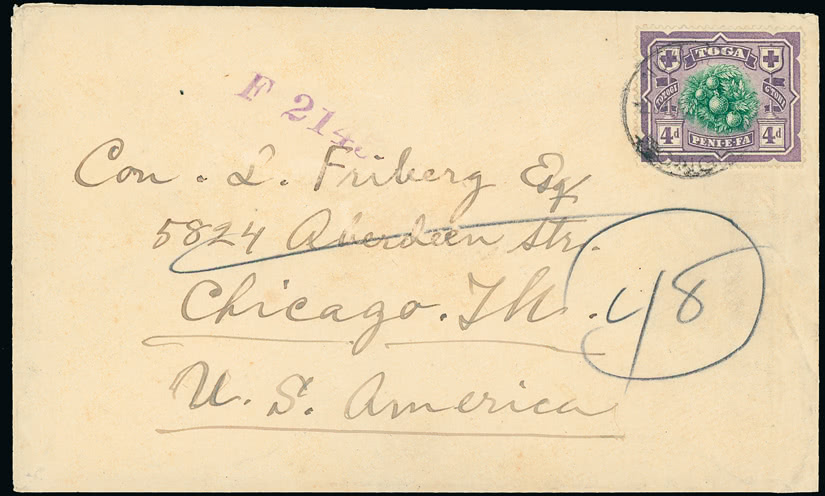 TOGA
4d 4d
PENI-E-FA
F 214
Con. L. Friberg Esq
5824 Aberdeen Str.
Chicago. Ill.
48
U. S. America